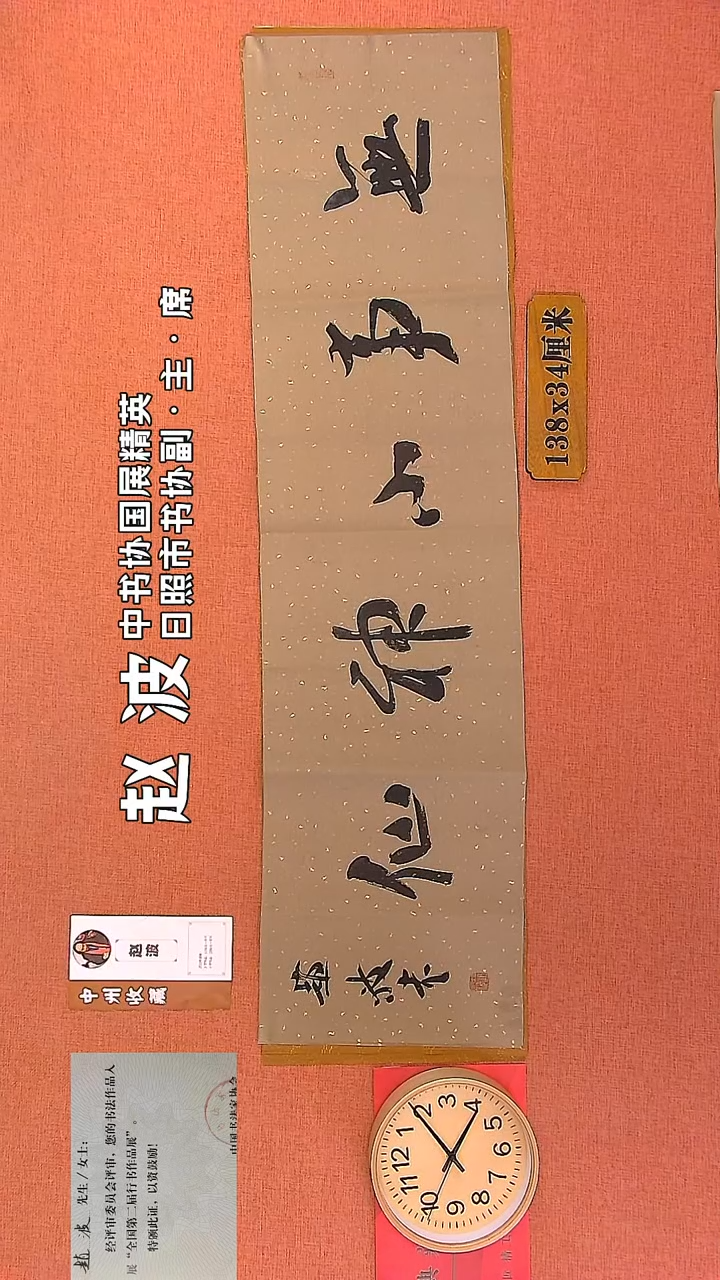 赵波
中书协国展精英
日照市书协副·主·席
无事小神仙
赵波书
138x34厘米
赵波
中州收藏
趙 波 先生/女士:
经评审委员会评审,您的书法作品入
展“全国第二届行书作品展”。
特颁此证,以资鼓励!
中国书法家协会
12
1
2
3
4
5
6
7
8
9
10
11